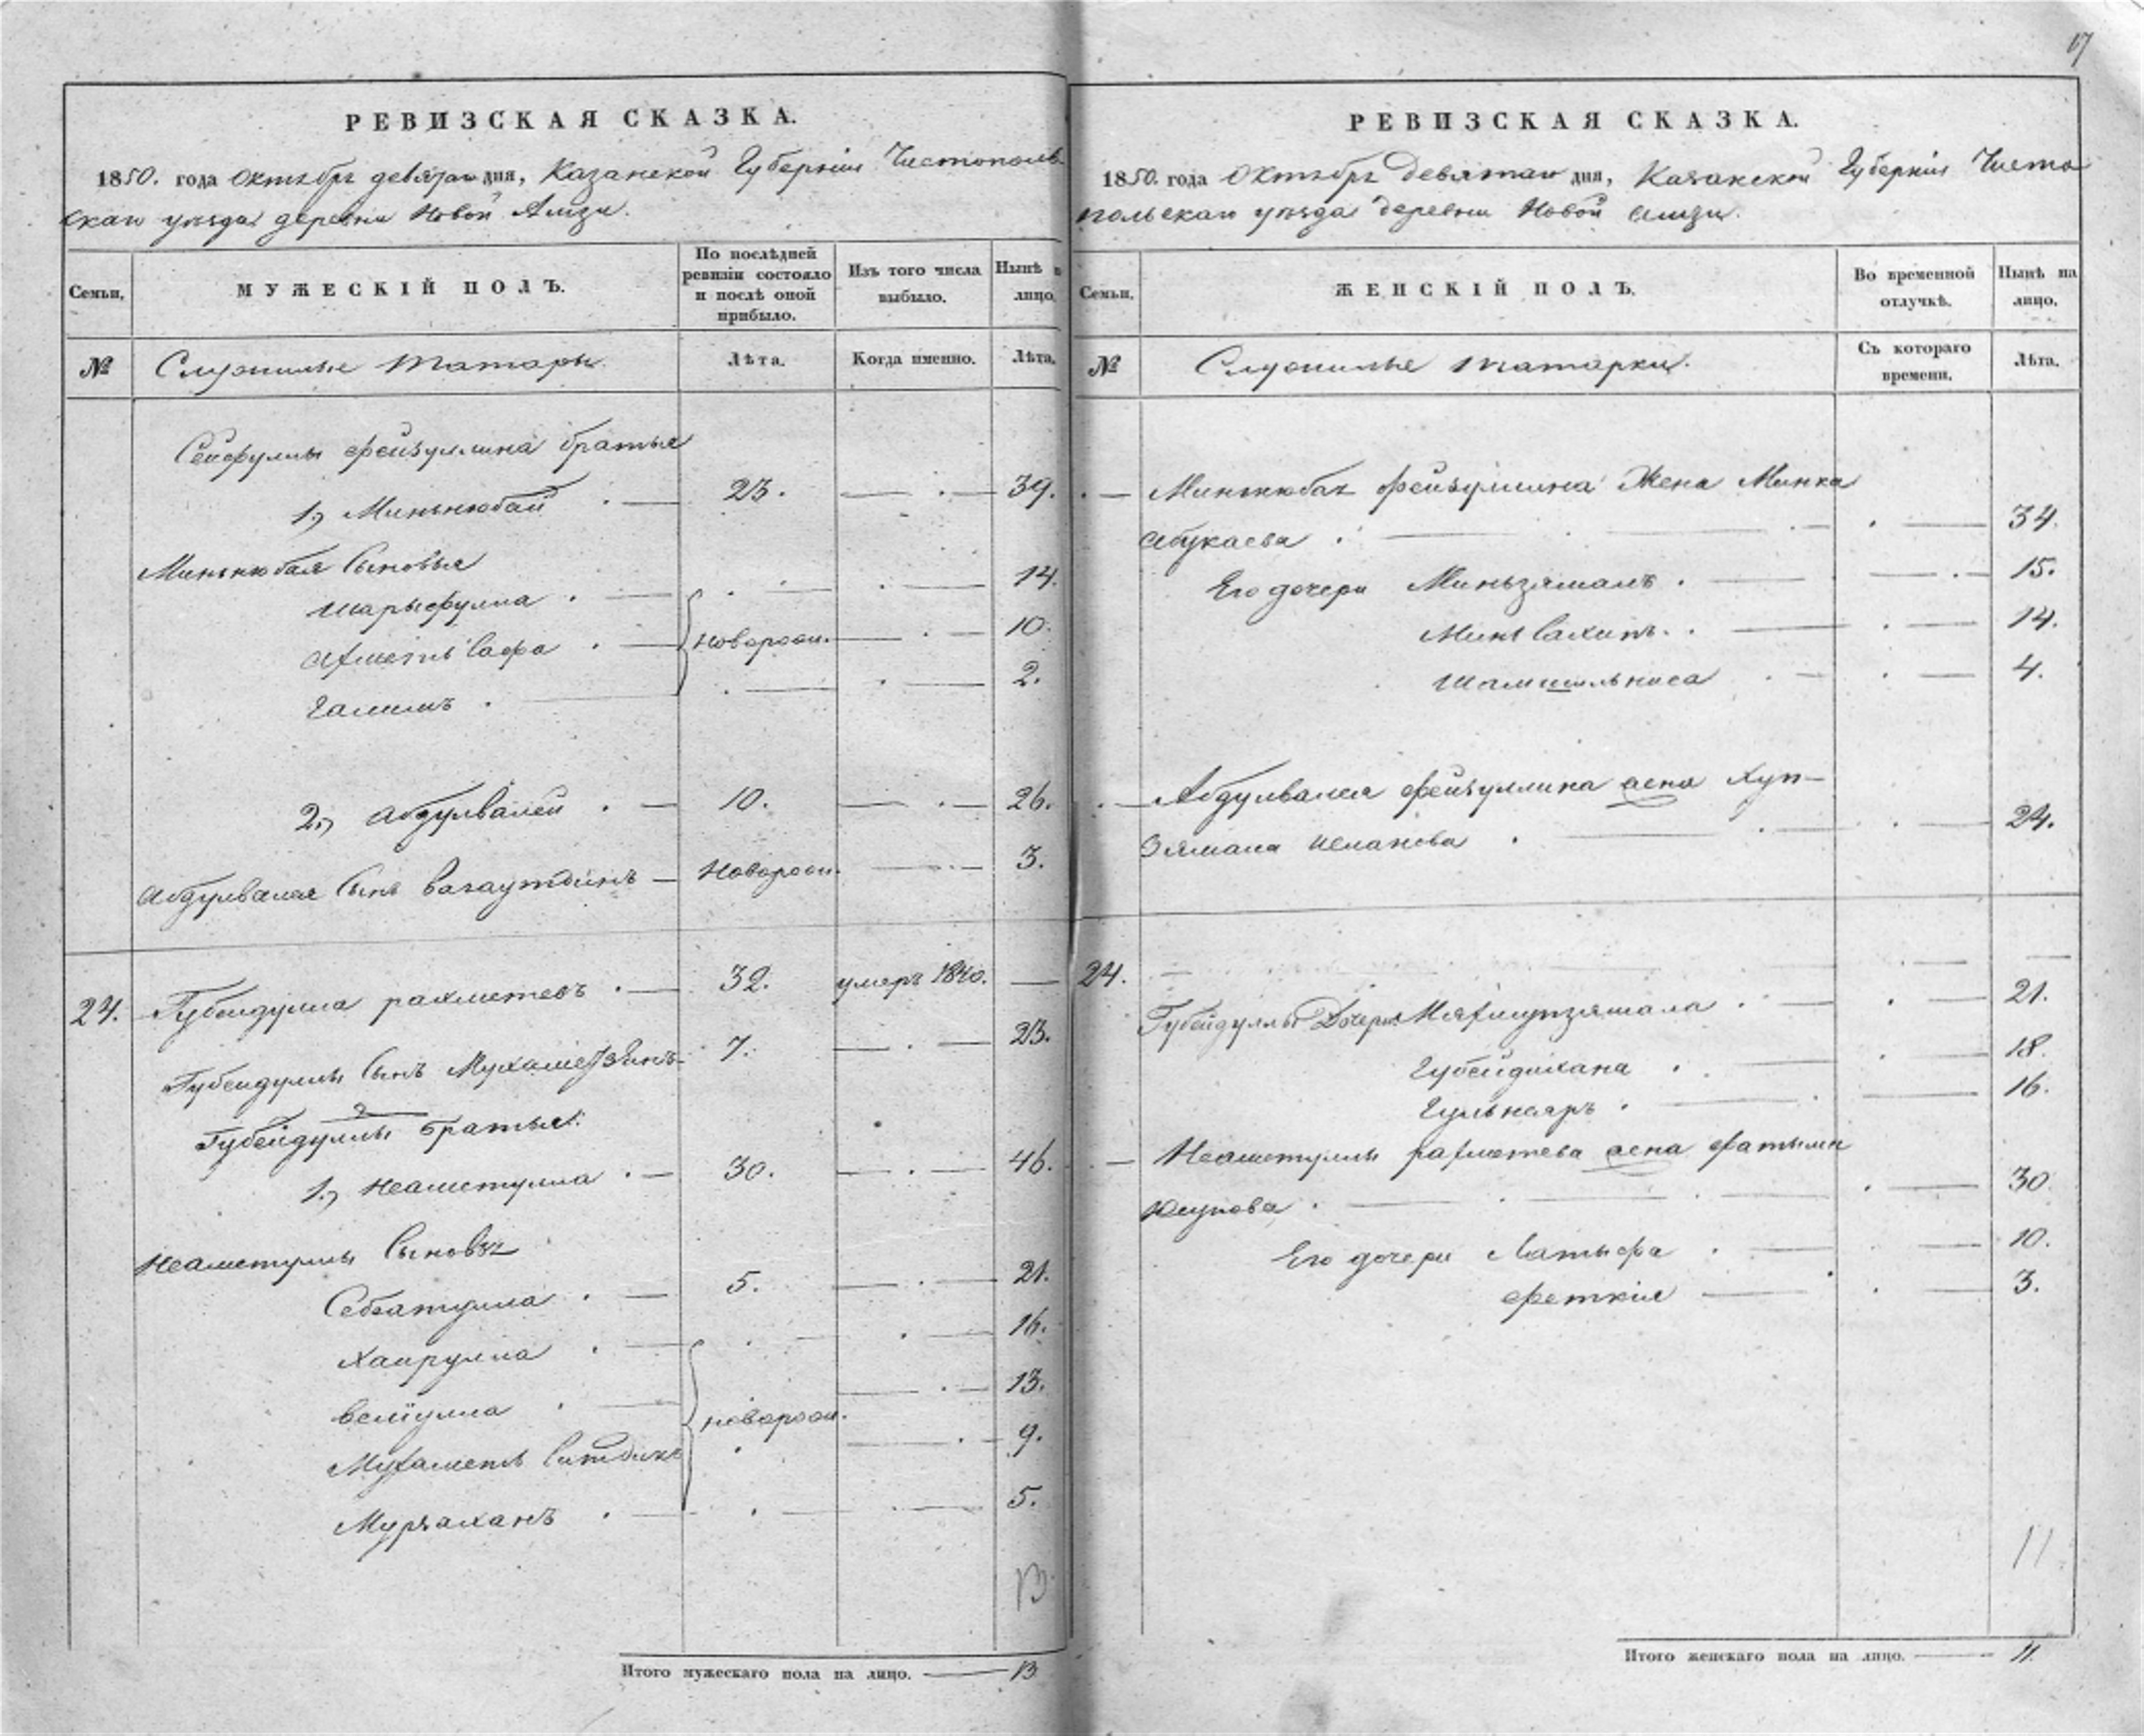 17
РЕВИЗСКАЯ СКАЗКА.
1850. года Октября девятаго дня, Казанской Губерніи Чистополь-
скаго уѣзда деревни Новой Амзи.
Семьи,
МУЖЕСКІЙ ПОЛЪ.
По послѣдней ревизіи состояло и послѣ оной прибыло.
Изъ того числа выбыло.
Нынѣ на лицо.
№
Служилые татары.
Лѣта.
Когда именно.
Лѣта.
Сейфуллы Фейзуллина братья
1, Миннюбай . — 23. — . — 39.
Миннюбая Сыновья
Шарыфулла . — . — . — 14.
Ахметь Сафа . — новорож. — . — 10.
Галимъ . — . — . — 2.
2, Абдулвалей . — 10. — . — 26.
Абдулвалея Сынъ Вагаутдинъ — Новорож. — . — 3.
24. Губейдулла рахметевъ . — 32. умеръ 1840. —
Губейдуллы Сынъ Мухаметзянъ 7. — . — 23.
Губейдуллы 2 братья:
1, Неаметулла . — 30. — . — 46.
Неаметуллы Сыновья
Себеатулла . — 5. — . — 21.
Хайрулла . — . — . — 16.
Велiулла . — новорож. — . — 13.
Мухаметь Ситдикъ . — . — 9.
Мурзаханъ . — . — . — 5.
13
Итого мужескаго пола на лицо. — 13
РЕВИЗСКАЯ СКАЗКА.
1850. года Октября девятаго дня, Казанской Губерніи Чисто
польскаго уѣзда деревни Новой Амзи.
Семьи.
ЖЕНСКІЙ ПОЛЪ.
Во временной отлучкѣ.
Нынѣ на лицо.
№
Служилые татарки.
Съ котораго времени.
Лѣта.
. — Миннюбая Фейзуллина Жена Минка
Абукаева . — . — 34.
Его дочери Миньзямалъ . — . — 15.
Минсахипъ . — . — 14.
Шамшльниса . — . — 4.
. — Абдулвалея Фейзуллина жена Хуп-
зямала Исланова . — . — 24.
24. — . — —
Губейдуллы Дочери Мяхпупзямала . — . — 21.
Губейдихана . — . — 18.
Гульнаяръ . — . — 16.
. — Неаметуллы рахметева жена Фатыма
Юсупова . — . — 30.
Его дочери Латыфа . — . — 10.
Феткiя — . — 3.
11
Итого женскаго пола на лицо. — 11.